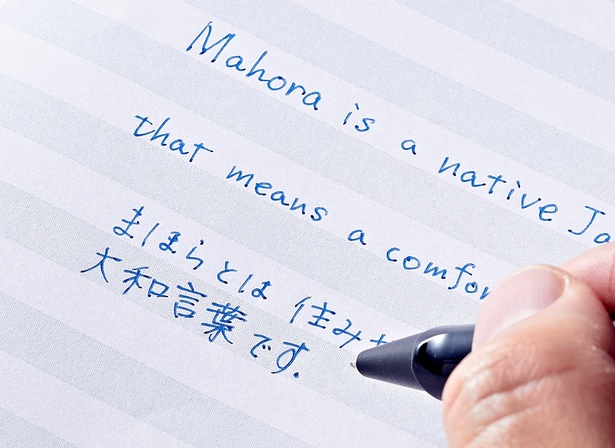 Mahora is a native Ja
that means a comfor
まほらとは 住み
大和言葉です。